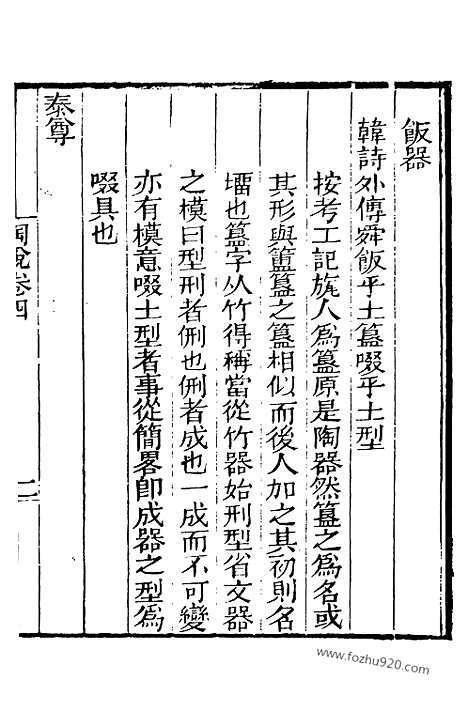 飯器
韓詩外傳舜飯乎土簋啜乎土型
按考工記旊人爲簋原是陶器然簋之爲名或
其形與簠簋之簋相似而後人加之其初則名
塯也簋字从竹得稱當從竹器始刑型省文器
之模曰型刑者侀也侀者成也一成而不可變
亦有模意啜土型者事從簡畧卽成器之型爲
啜具也
泰尊
陶說卷四
二
www.fozhu920.com